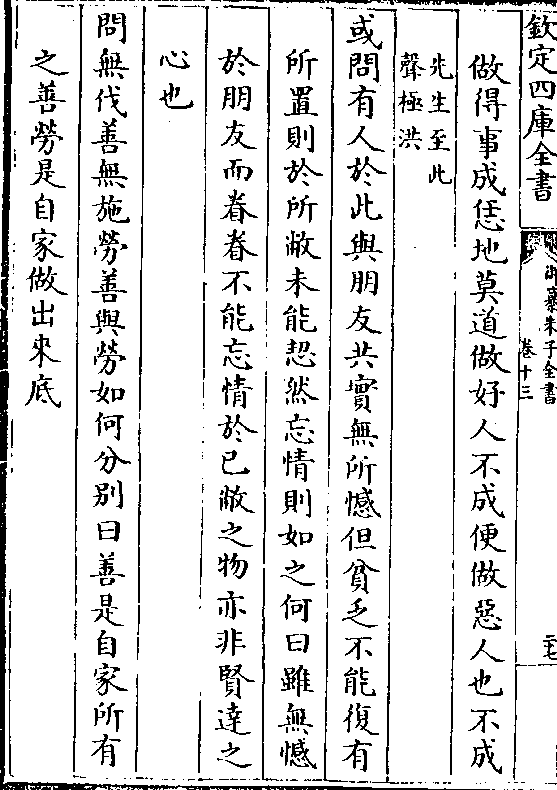 欽定四庫全書
御纂朱子全書
卷十三
二十七
做得事成恁地莫道做好人不成便做惡人也不成
先生至此
聲極洪
或問有人於此與朋友共實無所憾但貧乏不能復有
所置則於所敝未能恝然忘情則如之何曰雖無憾
於朋友而眷眷不能忘情於已敝之物亦非賢達之
心也
問無伐善無施勞善與勞如何分别曰善是自家所有
之善勞是自家做出來底